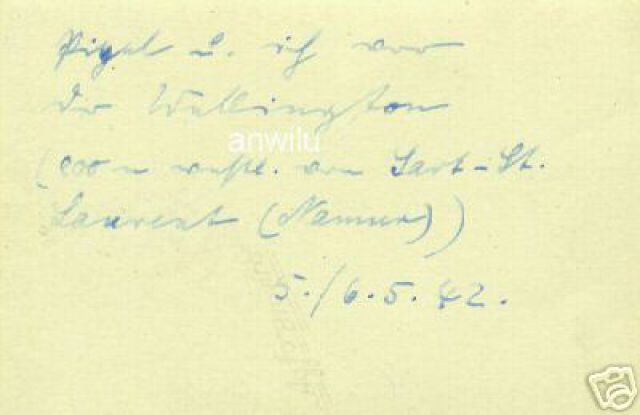 u. ich vor
der Wellington
anwilu
(800 m westl. von Sart-St.
Laurent (Namur))
5./6.5.42.